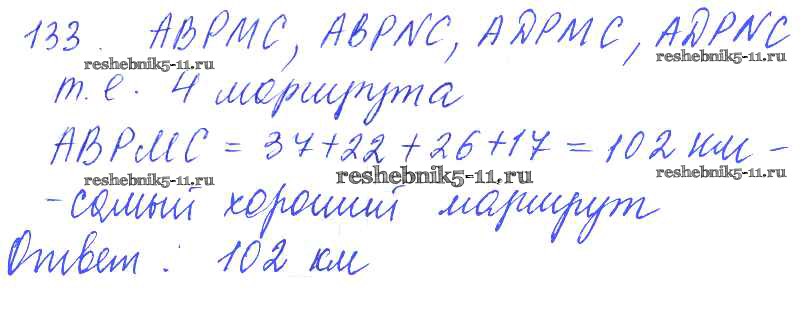 133. АВРМС, АВРNС, АДРМС, АДРNС
reshebnik5-11.ru reshebnik5-11.ru
т.е. 4 маршрута
АВРМС = 37+22+26+17 = 102 км -
reshebnik5-11.ru reshebnik5-11.ru reshebnik5-11.ru
-самый хороший маршрут
Ответ: 102 км